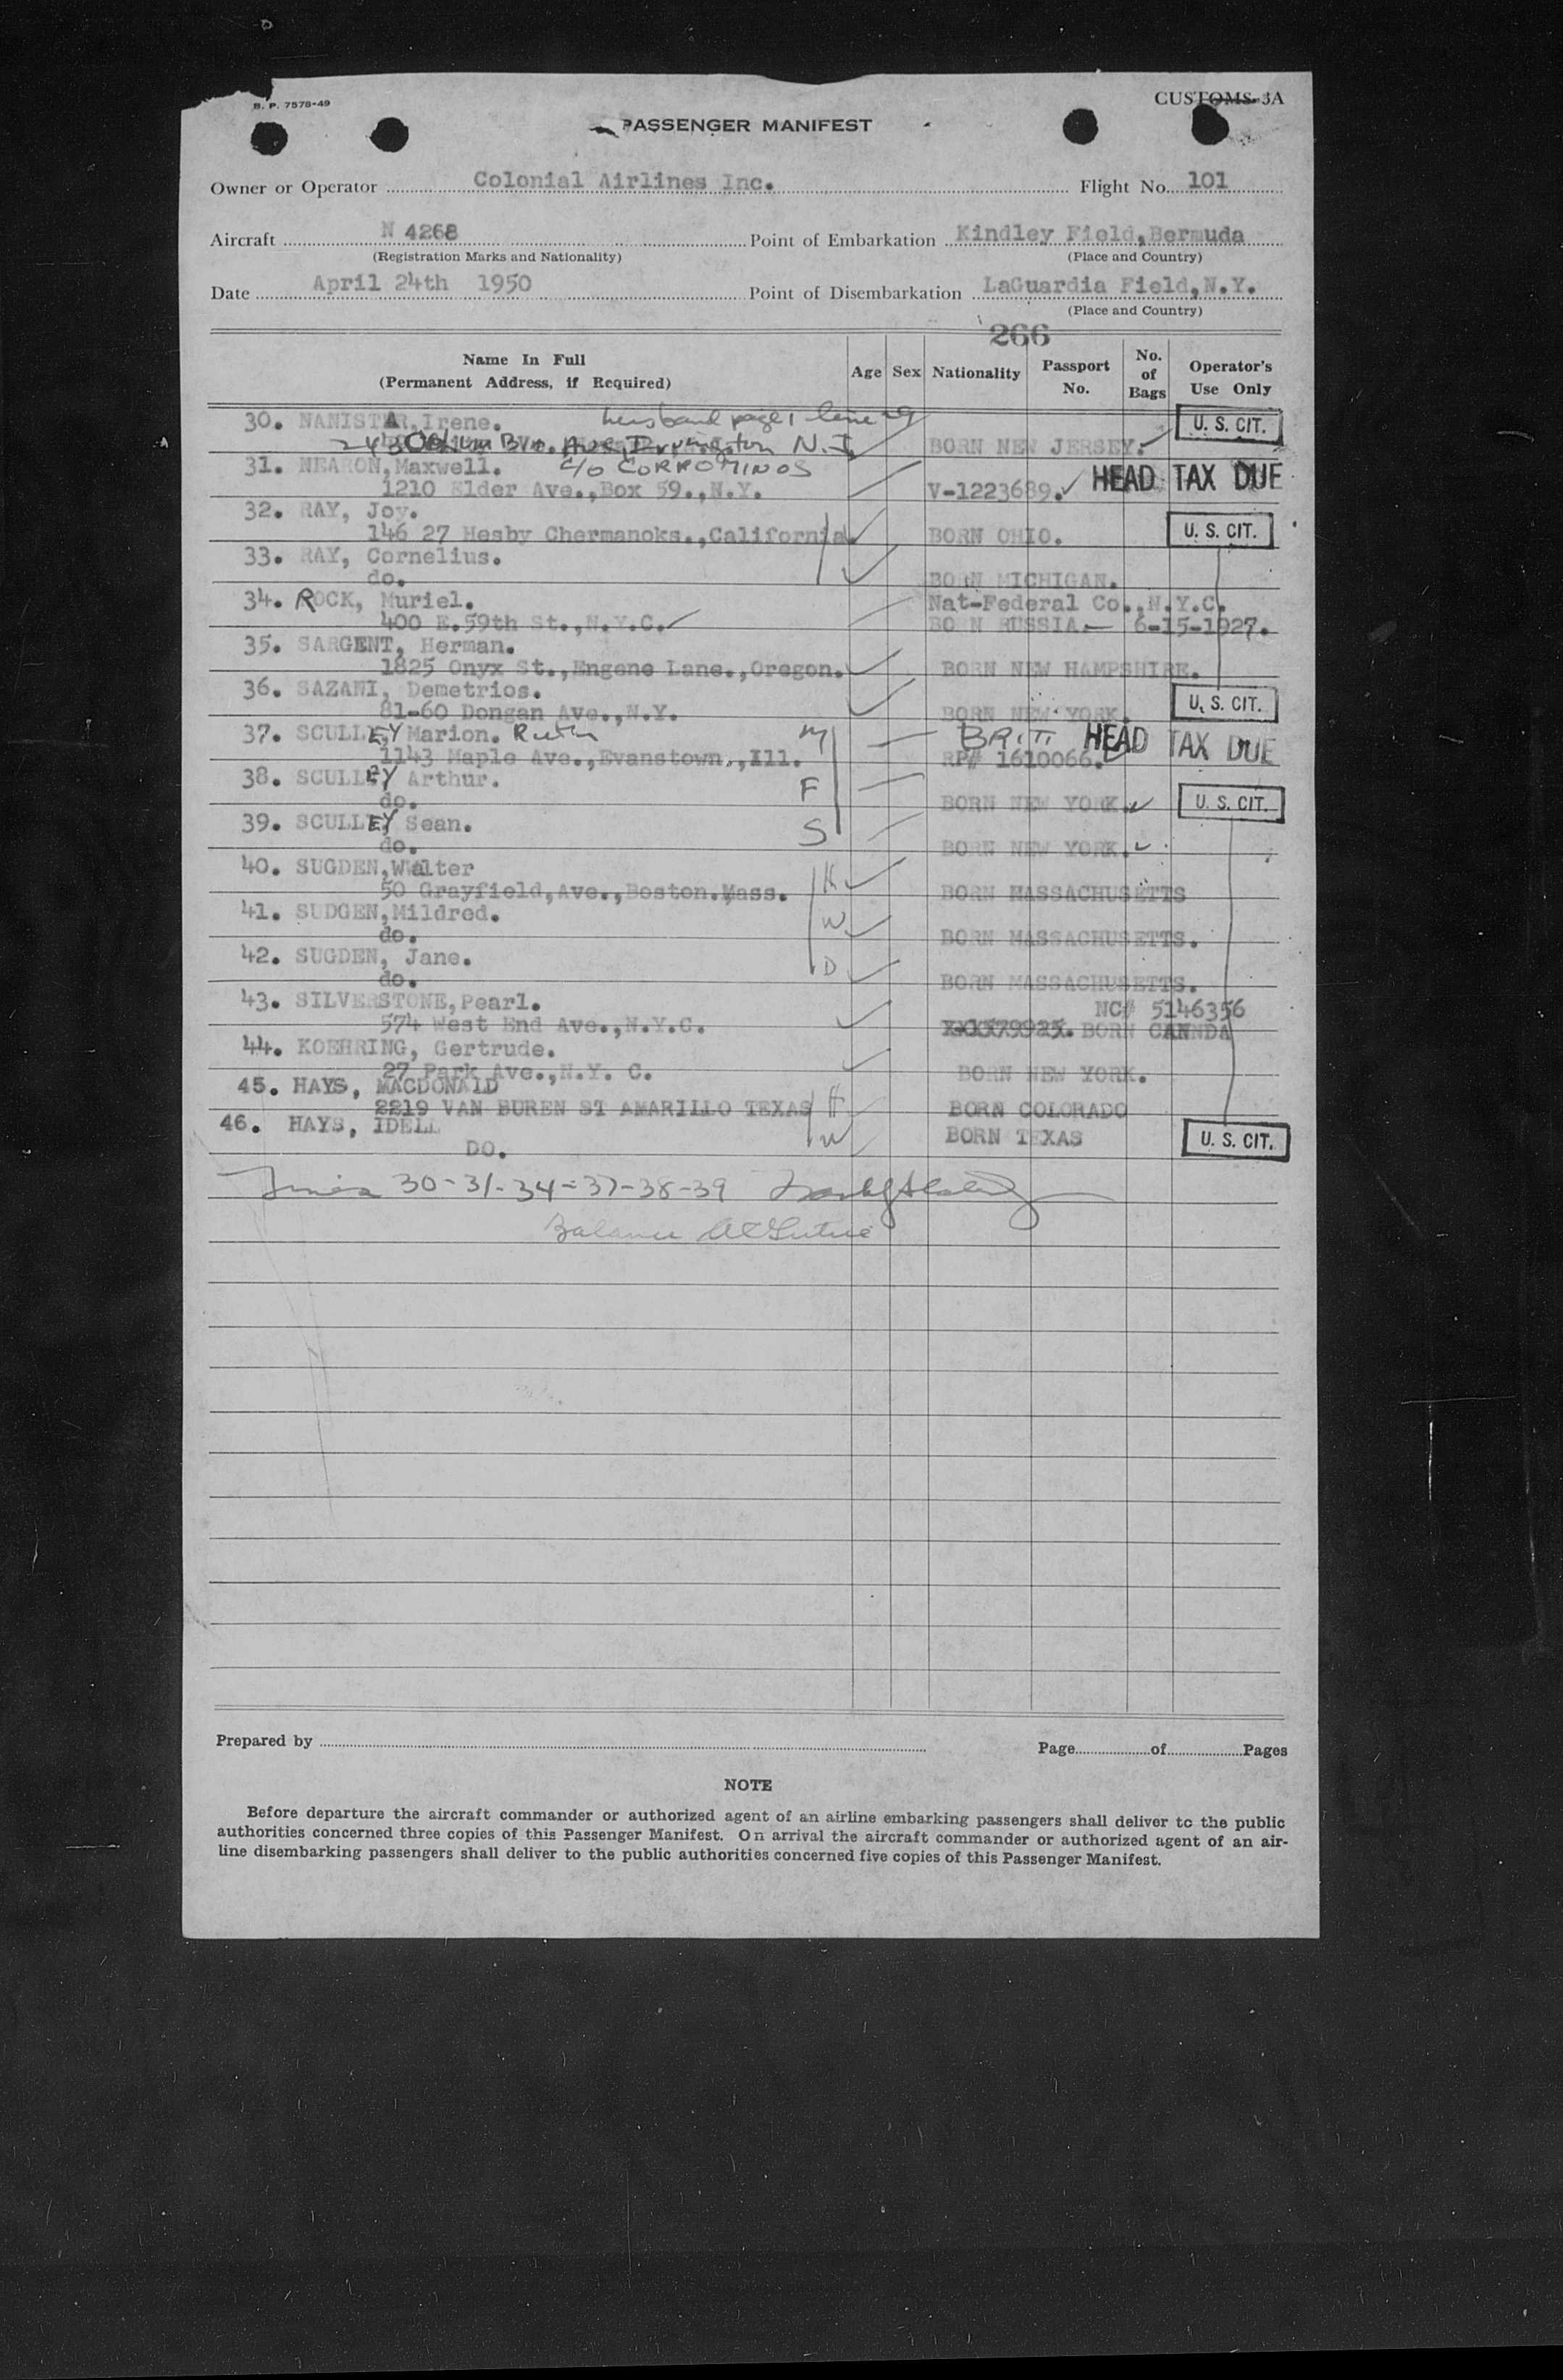 B. P. 7578-49
CUSTOMS 3A
PASSENGER MANIFEST
Owner or Operator Colonial Airlines Inc. Flight No. 101
Aircraft N 4268 Point of Embarkation Kindley Field, Bermuda
(Registration Marks and Nationality) (Place and Country)
Date April 24th 1950 Point of Disembarkation LaGuardia Field, N.Y.
(Place and Country)
266
Name In Full (Permanent Address, if Required) Age Sex Nationality Passport No. No. of Bags Operator's Use Only
30. NANISTAR, Irene. husband page 1 line 29 U. S. CIT.
Ave, Irvington N.J. BORN NEW JERSEY.
31. NEARON, Maxwell. c/o CORROMINOS HEAD TAX DUE
1210 Elder Ave., Box 59., N.Y. V-1223689.
32. RAY, Joy.
146 27 Hesby Chermanoks., California. BORN OHIO. U. S. CIT.
33. RAY, Cornelius.
do. BORN MICHIGAN.
34. ROCK, Muriel. Nat-Federal Co., N.Y.C.
400 E. 59th St., N.Y.C. BORN RUSSIA — 6-15-1927.
35. SARGENT, Herman.
1825 Onyx St., Engene Lane., Oregon. BORN NEW HAMPSHIRE.
36. SAZANI, Demetrios. U. S. CIT.
81-60 Dongan Ave., N.Y. BORN NEW YORK.
37. SCULLEY Marion. Ruth M BRIT. HEAD TAX DUE
1143 Maple Ave., Evanstown., Ill. RP# 1610066.
38. SCULLEY Arthur. F
do. BORN NEW YORK. U. S. CIT.
39. SCULLEY Sean. S
do. BORN NEW YORK.
40. SUGDEN, Walter H
50 Grayfield, Ave., Boston. Mass. BORN MASSACHUSETTS
41. SUDGEN, Mildred. W
do. BORN MASSACHUSETTS.
42. SUGDEN, Jane. D
do. BORN MASSACHUSETTS.
43. SILVERSTONE, Pearl. NC# 5146356
574 West End Ave., N.Y.C. BORN CANNDA
44. KOEHRING, Gertrude.
27 Park Ave., N.Y. C. BORN NEW YORK.
45. HAYS, MACDONALD
2219 VAN BUREN ST AMARILLO TEXAS H BORN COLORADO
46. HAYS, IDELL W BORN TEXAS U. S. CIT.
DO.
Lines 30-31-34-37-38-39
Balance
Prepared by Page of Pages
NOTE
Before departure the aircraft commander or authorized agent of an airline embarking passengers shall deliver to the public
authorities concerned three copies of this Passenger Manifest. On arrival the aircraft commander or authorized agent of an air-
line disembarking passengers shall deliver to the public authorities concerned five copies of this Passenger Manifest.